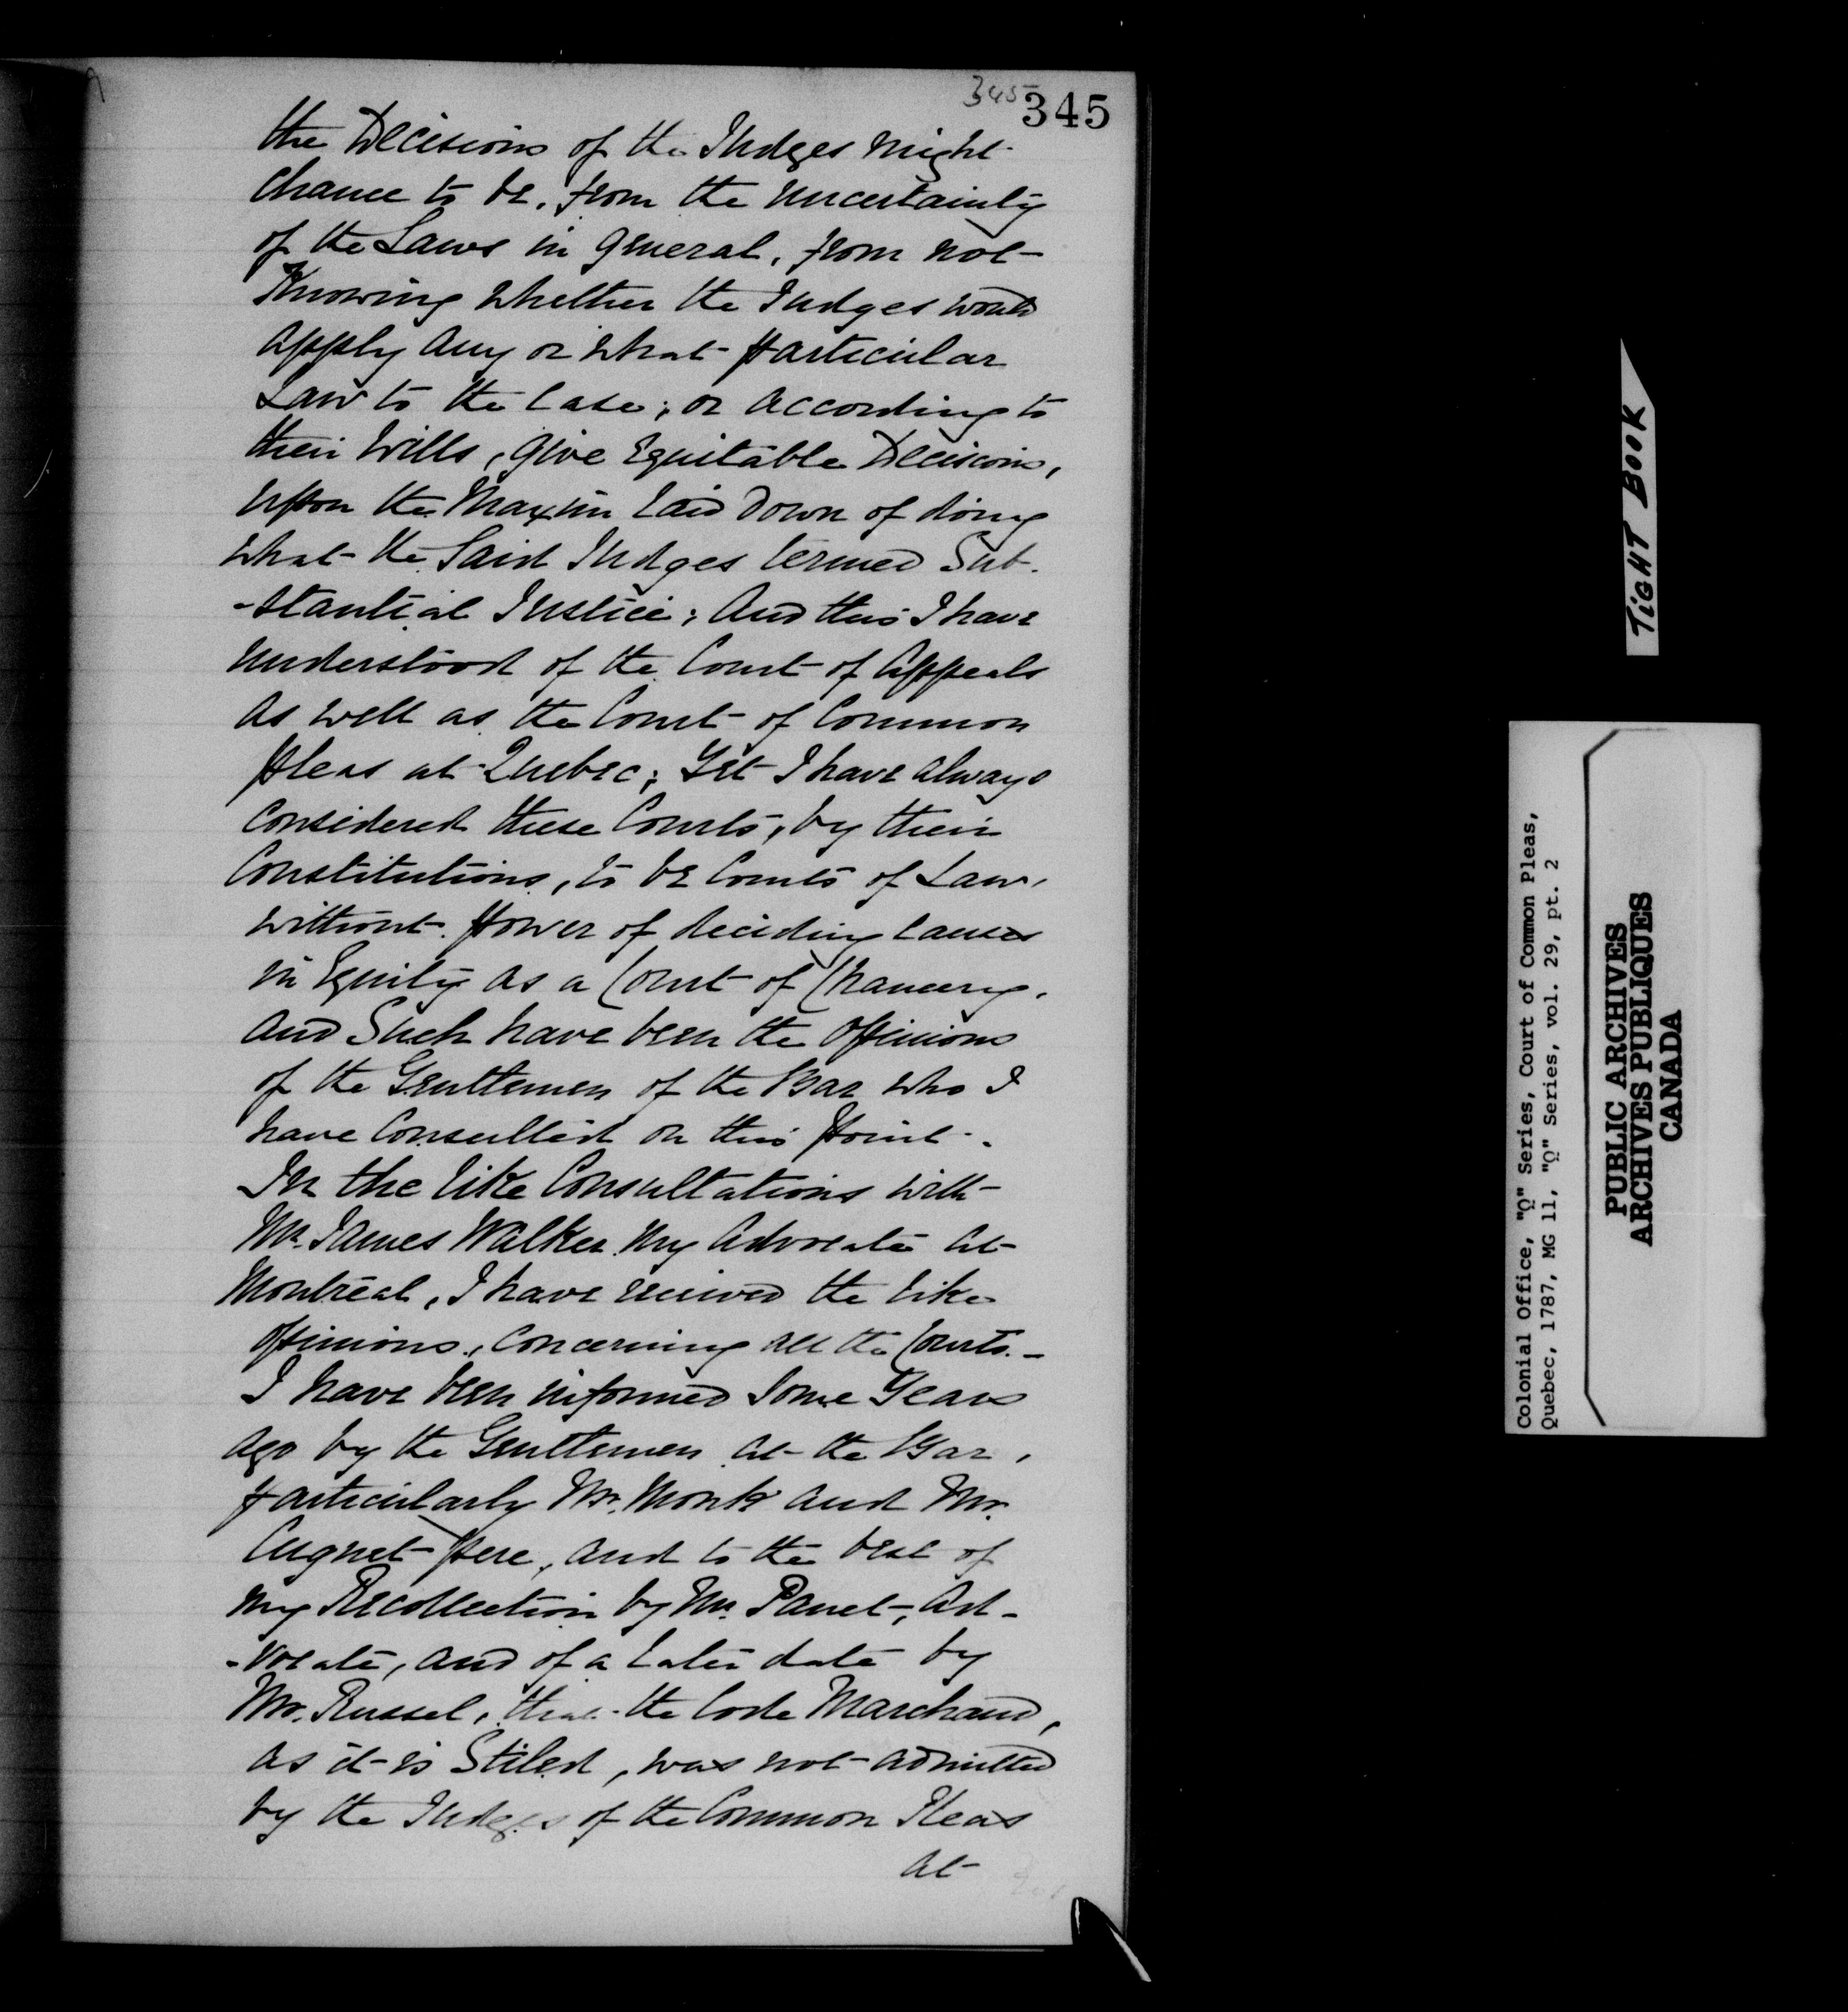 345
345
the Decisions of the Judges might
chance to be, from the uncertainty
of the Laws in general, from not
Knowing whether the Judges would
apply any or what particular
Law to the Case; or according to
their Wills, give Equitable Decisions,
upon the Maxim laid Down of doing
what the Said Judges termed Sub-
-stantial Justice; And this I have
understood of the Court of Appeals
as well as the Court of Common
pleas at Quebec; Yet I have always
Considered these Courts, by their
Constitutions, to be Courts of Law,
without power of deciding Causes
in Equity as a Court of Chancery.
And Such have been the Opinions
of the Gentlemen of the Bar who I
have Consulted on this point.
In the like Consultations with
Mr. James Walker my Advocate at
Montreal, I have received the like
Opinions, Concerning all the Courts. -
I have been informed Some Years
ago by the Gentlemen at the Bar,
particularly Mr. Monk and Mr.
Cugnet pere, and to the best of
my Recollection by Mr. Panet, Ad-
-vocate, and of a Later date by
Mr. Russel, that the Code Marchand,
as it is Stiled, was not admitted
by the Judges of the Common Pleas
at
TIGHT BOOK
Colonial Office, "Q" Series, Court of Common Pleas,
Quebec, 1787, MG 11, "Q" Series, vol. 29, pt. 2
PUBLIC ARCHIVES
ARCHIVES PUBLIQUES
CANADA